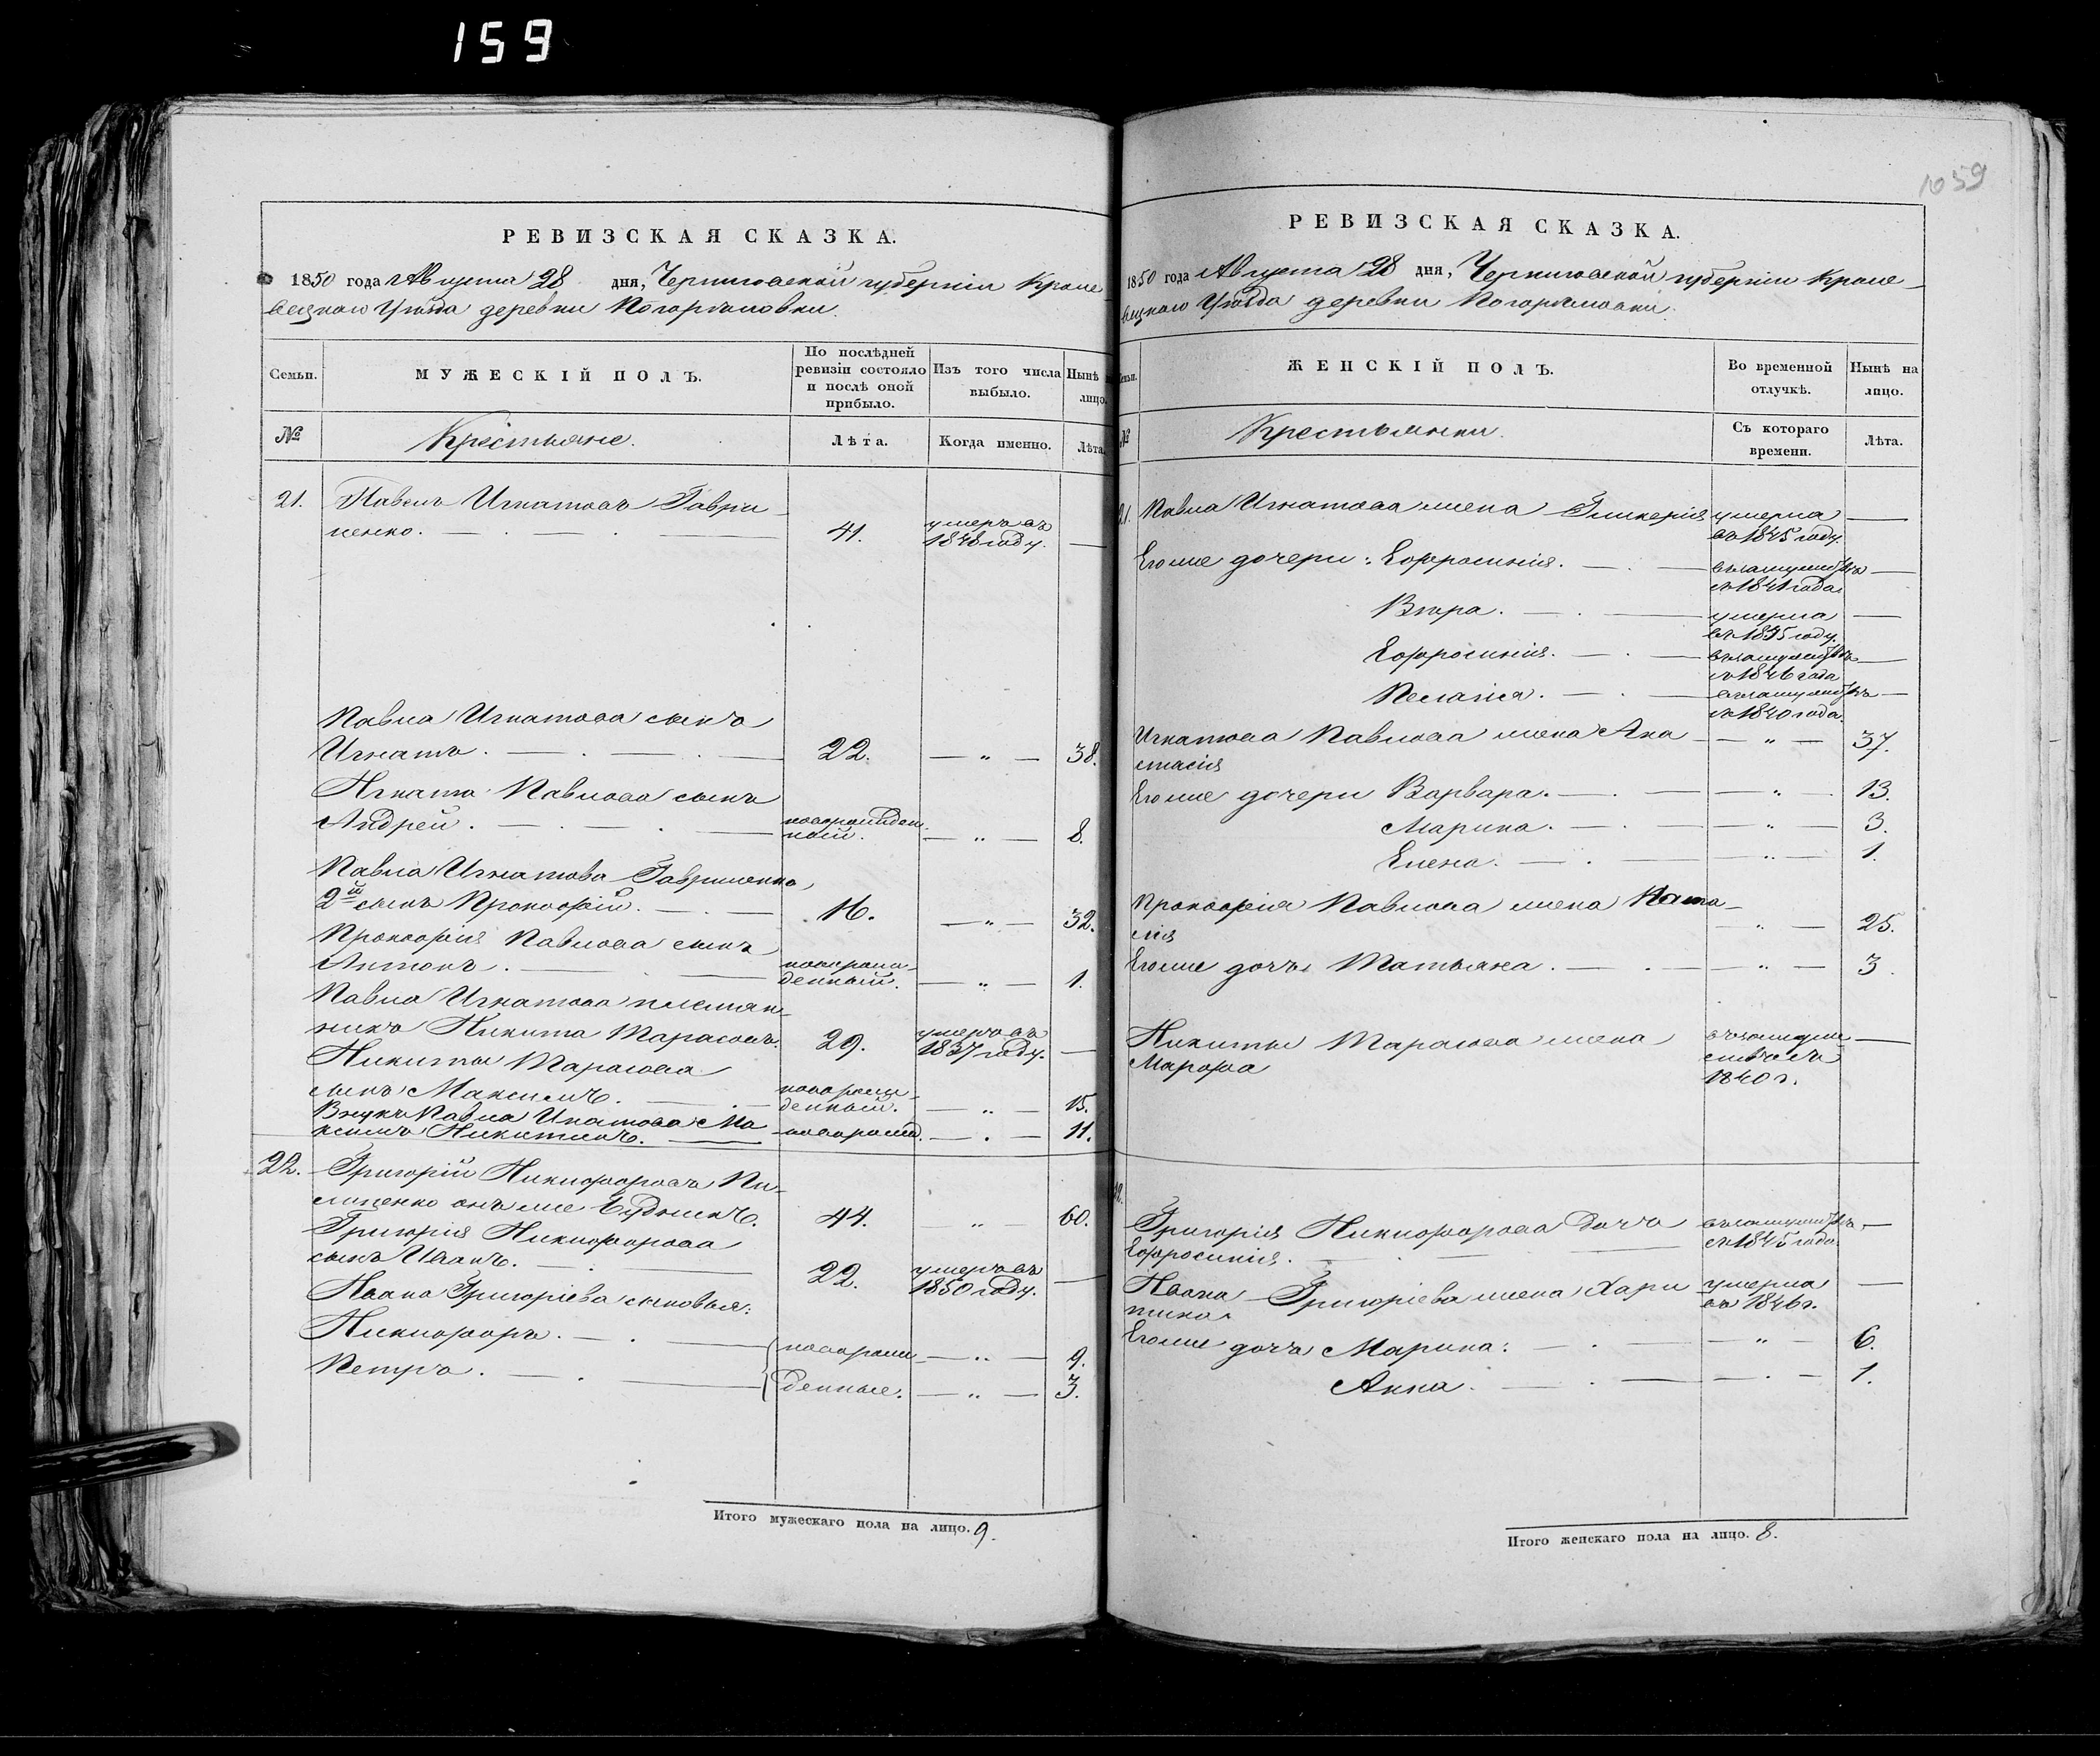 159
РЕВИЗСКАЯ СКАЗКА.
1850 года Августа 28 дня, Черниговской губерніи Кроле-
вецкаго Уѣзда деревни Погорѣловки.
Семьи. МУЖЕСКІЙ ПОЛЪ. По послѣдней ревизіи состояло и послѣ оной прибыло. Изъ того числа выбыло. Нынѣ на лицо.
№ Крестьяне. Лѣта. Когда именно. Лѣта.
21. Павелъ Игнатовъ Гаври-
ленко. 41. умеръ въ 1848 году. —
Павла Игнатова сынъ
Игнатъ. 22. — „ — 38.
Игната Павлова сынъ
Андрей. новорожден-ный. — „ — 8.
Павла Игнатова Гавриленка
2й сынъ Прокофій. 16. — „ — 32.
Прокофія Павлова сынъ
Антонъ. новорож-денный. — „ — 1.
Павла Игнатова племян-
никъ Никита Тарасовъ. 29. умеръ въ 1837 году. —
Никиты Тарасова
сынъ Максимъ. новорож-денный. — „ — 15.
Внукъ Павла Игнатова Ма-
ксимъ Никитинъ. новорожд. — „ — 11.
22. Григорій Никифоровъ Пи-
липенко онъ же Будникъ. 44. — „ — 60.
Григорія Никифорова
сынъ Иванъ. 22. умеръ въ 1850 году. —
Ивана Григоріева сыновья:
Никифоръ. новорож- — „ — 9.
Петръ. денные. — „ — 3.
Итого мужескаго пола на лицо. 9.
1059
РЕВИЗСКАЯ СКАЗКА.
1850 года Августа 28 дня, Черниговской губерніи Кроле-
вецкаго Уѣзда деревни Погорѣловки.
Семьи. ЖЕНСКІЙ ПОЛЪ. Во временной отлучкѣ. Нынѣ на лицо.
№ Крестьянки. Съ котораго времени. Лѣта.
21. Павла Игнатова жена Гликерія умерла въ 1845 году. —
Его же дочери: Ефросинія. въ замужествѣ съ 1841 года. —
Вѣра. умерла въ 1845 году. —
Ефросинія. въ замужествѣ съ 1846 года —
Пелагія. въ замужествѣ съ 1840 года. —
Игната Павлова жена Ана- — „ — 37.
стасія
Его же дочери Варвара. — „ — 13.
Марина. — „ — 3.
Елена. — „ — 1.
Прокофія Павлова жена Ната-
лія — „ — 25.
Его же дочь Татьяна. — „ — 3.
Никиты Тарасова жена въ замуже-
Марфа ствѣ съ 1840 г. —
22.
Григорія Никифорова дочь въ замужествѣ —
Ефросинія. съ 1845 года.
Ивана Григоріева жена Хари- умерла —
тина. въ 1846 г.
Его же дочь Марина: — „ — 6.
Анна. — „ — 1.
Итого женскаго пола на лицо. 8.